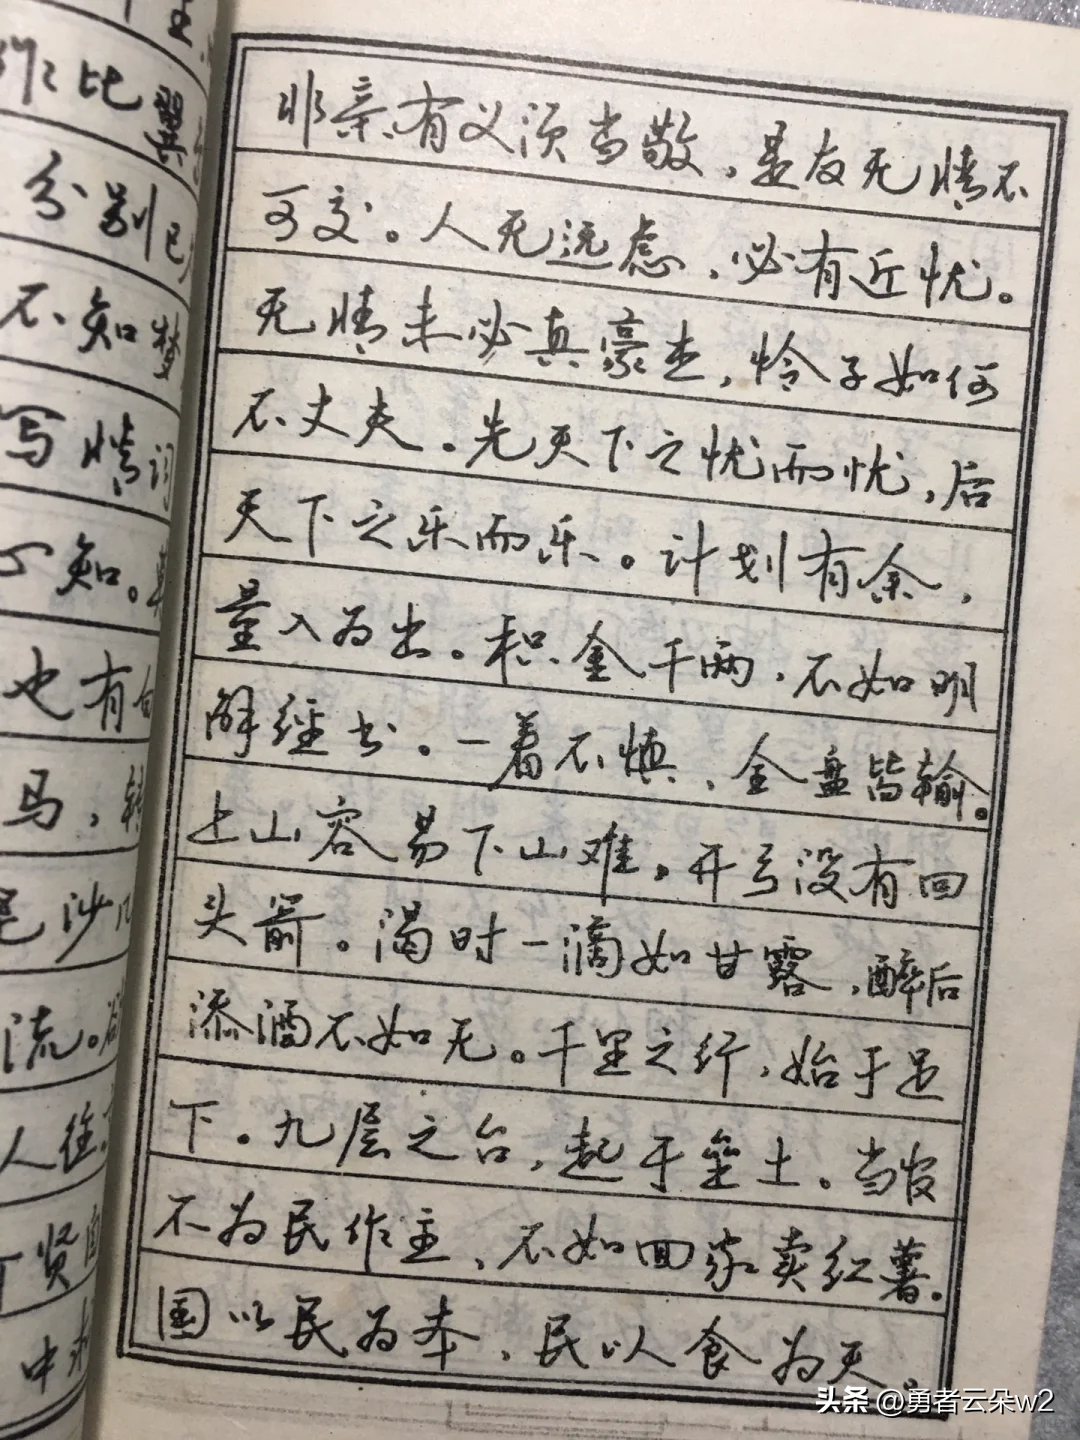 作比
集
分别已
不知梦
写情词
心知。
也有自
马，转
沙
流。
人往
贤
中
非亲有义须当敬，是友无情不
可交。人无远虑，必有近忧。
无情未必真豪杰，怜子如何
不丈夫。先天下之忧而忧，后
天下之乐而乐。计划有余，
量入为出。积金千两，不如明
解经书。一着不慎，全盘皆输。
上山容易下山难。开弓没有回
头箭。渴时一滴如甘露，醉后
添酒不如无。千里之行，始于足
下。九层之台，起于垒土。当官
不为民作主，不如回家卖红薯。
国以民为本，民以食为天。
头条@勇者云朵w2